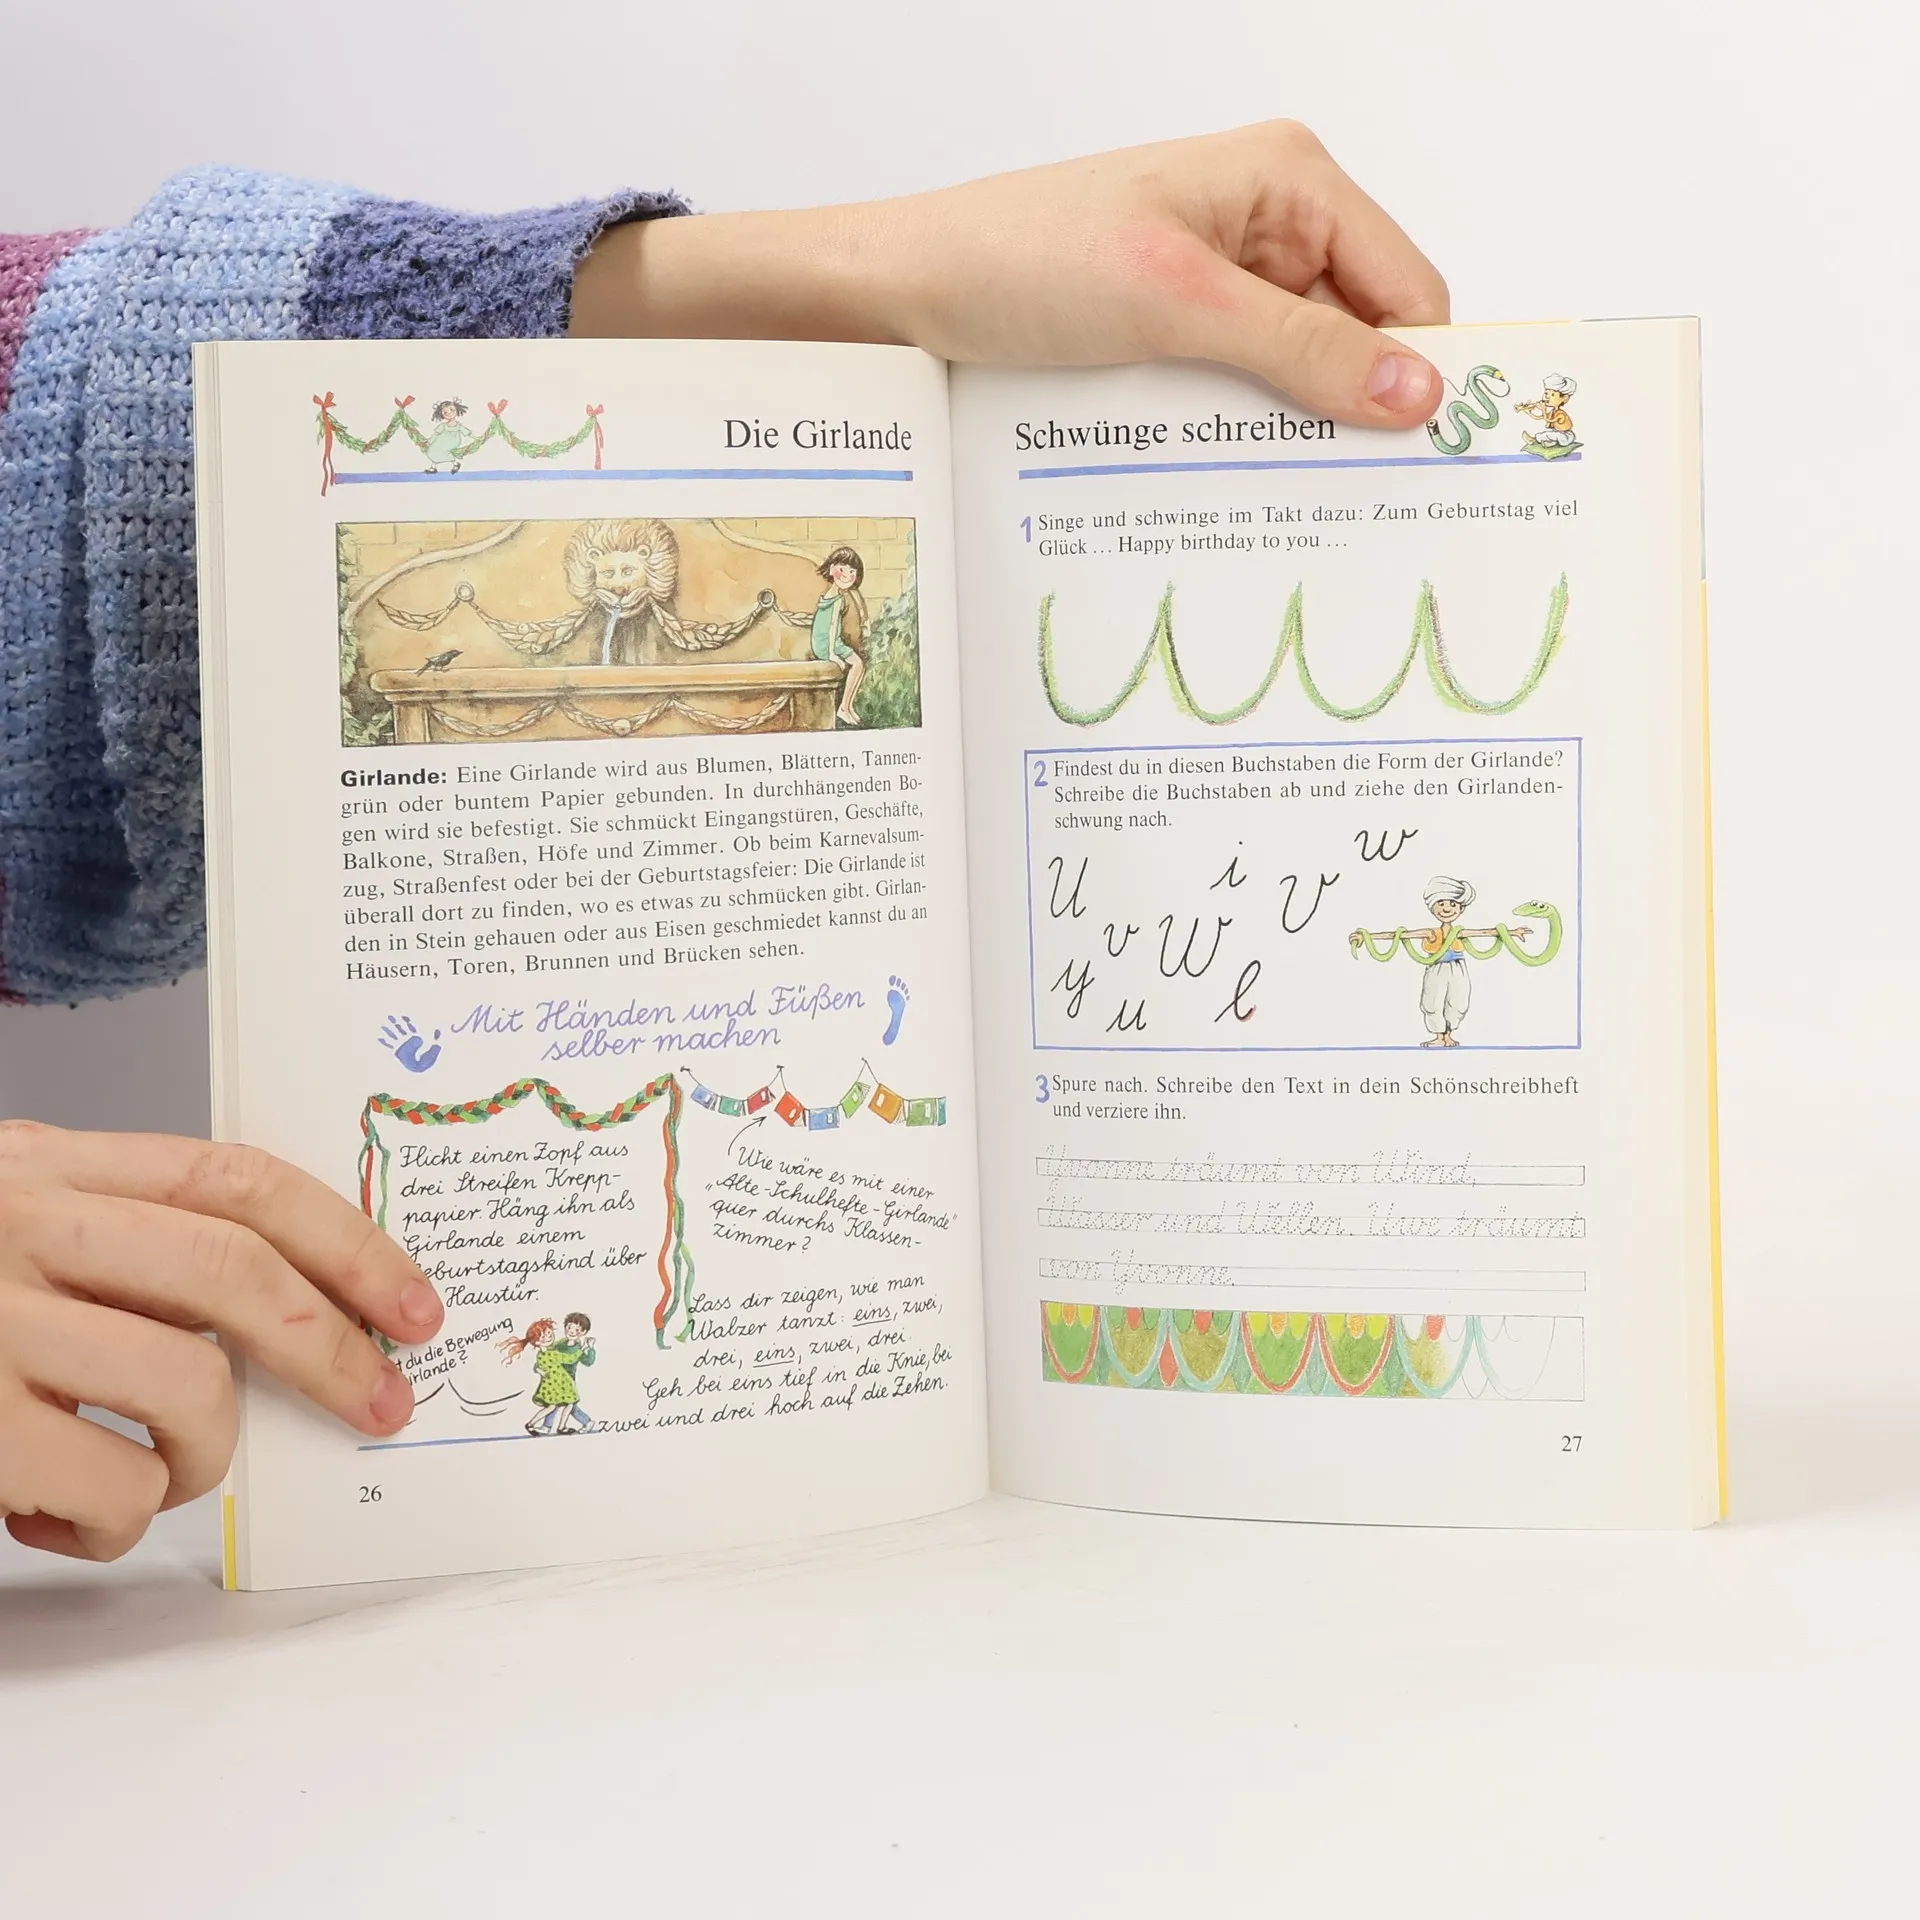 Die Girlande
Girlande: Eine Girlande wird aus Blumen, Blättern, Tannen-
grün oder buntem Papier gebunden. In durchhängenden Bo-
gen wird sie befestigt. Sie schmückt Eingangstüren, Geschäfte,
Balkone, Straßen, Höfe und Zimmer. Ob beim Karnevalsum-
zug, Straßenfest oder bei der Geburtstagsfeier: Die Girlande ist
überall dort zu finden, wo es etwas zu schmücken gibt. Girlan-
den in Stein gehauen oder aus Eisen geschmiedet kannst du an
Häusern, Toren, Brunnen und Brücken sehen.
Mit Händen und Füßen
selber machen
Flicht einen Zopf aus
drei Streifen Krepp-
papier. Häng ihn als
Girlande einem
eburtstagskind über
Haustür.
t du die Bewegung
irlande?
Wie wäre es mit einer
„Alte-Schulhefte-Girlande“
quer durchs Klassen-
zimmer?
Lass dir zeigen, wie man
Walzer tanzt: eins, zwei,
drei, eins, zwei, drei.
Geh bei eins tief in die Knie, bei
zwei und drei hoch auf die Zehen.
26
Schwünge schreiben
1 Singe und schwinge im Takt dazu: Zum Geburtstag viel
Glück ... Happy birthday to you ...
2 Findest du in diesen Buchstaben die Form der Girlande?
Schreibe die Buchstaben ab und ziehe den Girlanden-
schwung nach.
U i V w
v W
y u l
3 Spure nach. Schreibe den Text in dein Schönschreibheft
und verziere ihn.
Yvonne träumt von Wind,
Wasser und Wellen. Uwe träumt
von Yvonne.
27